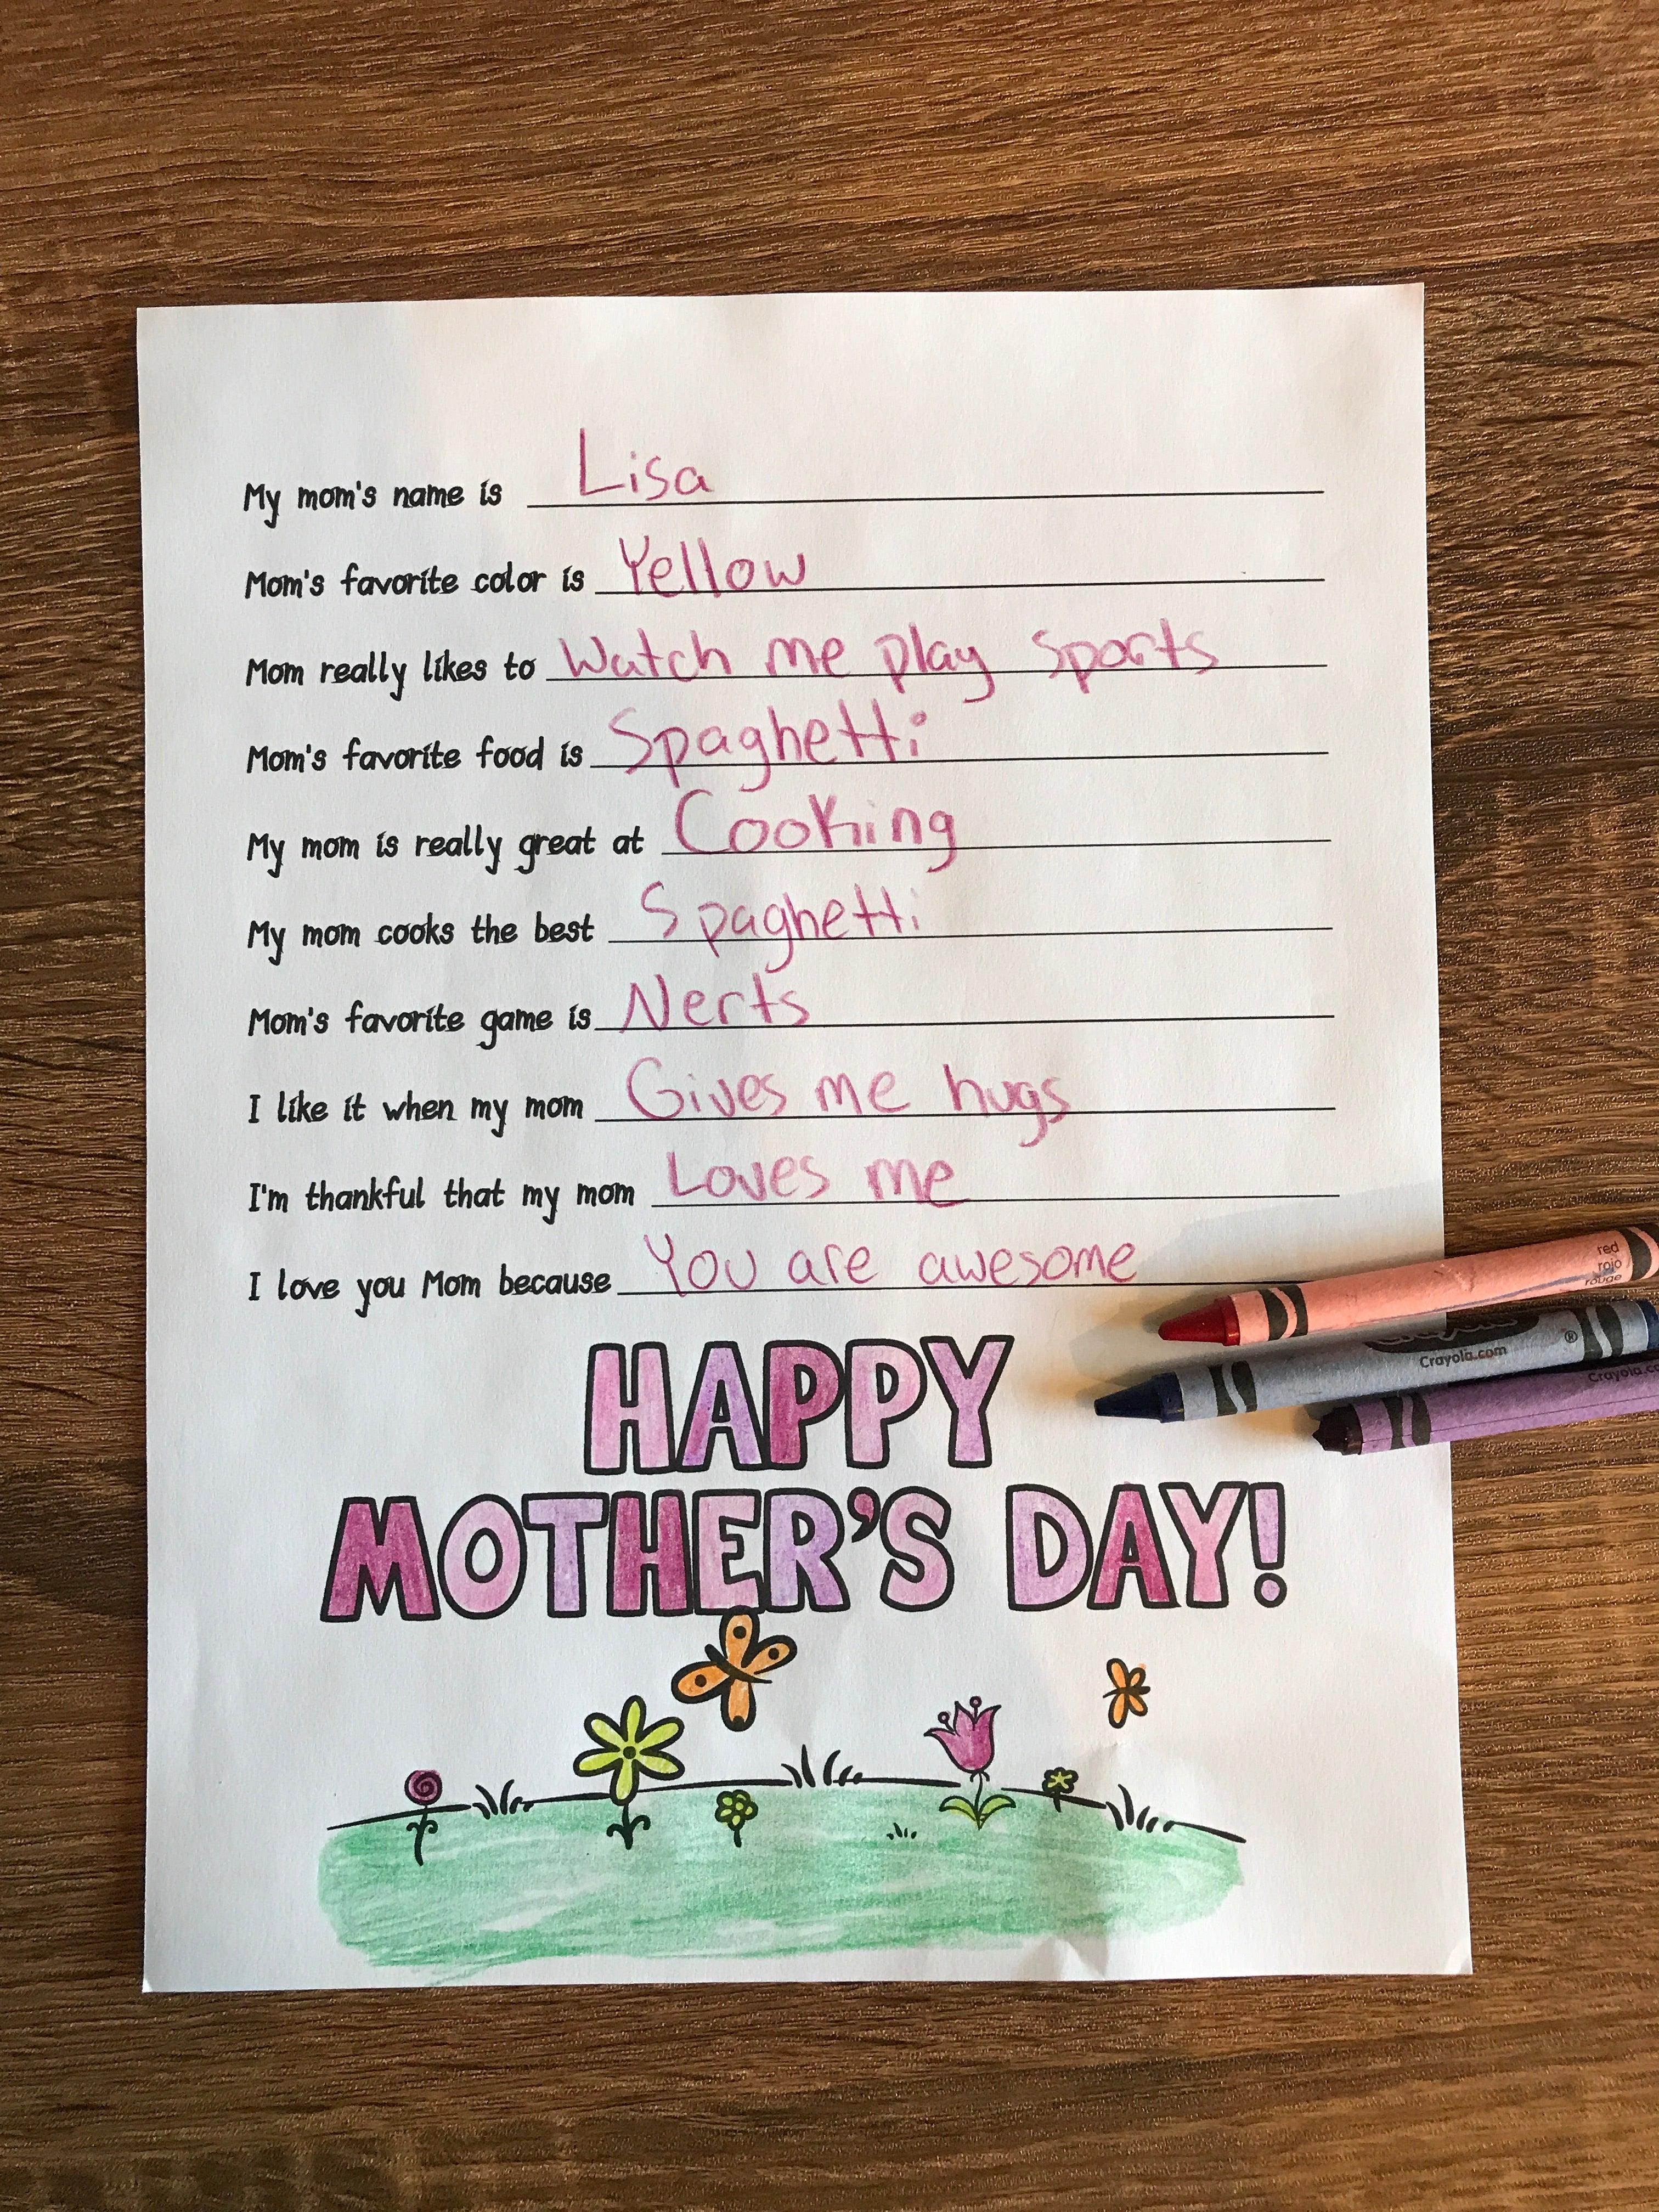 My mom's name is Lisa
Mom's favorite color is Yellow
Mom really likes to Watch me play Sports
Mom's favorite food is Spaghetti
My mom is really great at Cooking
My mom cooks the best Spaghetti
Mom's favorite game is Nerts
I like it when my mom Gives me hugs
I'm thankful that my mom Loves me
I love you Mom because You are awesome
red
rojo
rouge
Crayola.com
HAPPY
MOTHER'S DAY!